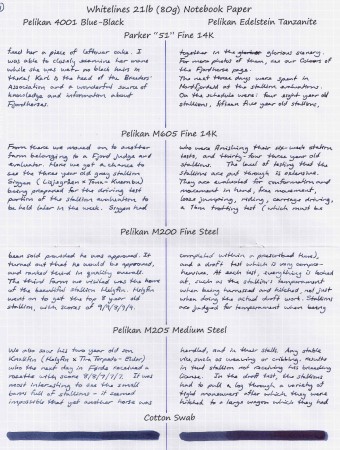 Whitelines 21lb (80g) Notebook Paper
Pelikan 4001 Blue-Black
Pelikan Edelstein Tanzanite
Parker "51" Fine 14K
feed her a piece of leftover cake. I
was able to closely examine her mane
while she was wet - no black hairs so
there! Karl is the head of the Breeders'
Association and a wonderful source of
knowledge and information about
Fjordhorses.
together in the glorious scenery.
For more photos of them, see our Colours of
the Fjordhorse page.
The next three days were spent in
Nordfjordeid at the stallion evaluations.
On the schedule were: four eight year old
stallions, fifteen five year old stallions,
Pelikan M605 Fine 14K
From there we moved on to another
farm belonging to a Fjord judge and
evaluator. Here we got a chance to
see the three year old gray stallion
being prepared for the driving test
portion of the stallion evaluation to
be held later in the week. Sogum had
who were finishing their six-week station
tests, and thirty-four three year old
stallions. The level of testing that the
stallions are put through is extensive.
They are evaluated for conformation and
movement in hand, free movement,
loose jumping, riding, carriage driving,
a 1km trotting test (which must be
Pelikan M200 Fine Steel
been sold provided he was approved. It
turned out that he would be approved,
and ranked third in quality overall.
The third farm we visited was the home
of the beautiful stallion Kelgfin. Kelgfin
went on to get the top 8 year old
stallion, with scores of 9/9/8/9/9.
completed within a prescribed time),
and a draft test which is very compre-
hensive. At each test, everything is looked
at, such as the stallion's temperament
when being harnessed and hitched, not just
when doing the actual draft work. Stallions
are judged for temperament when being
Pelikan M205 Medium Steel
We also saw his two year old son
who the next day in Førde received a
rosette with scores 8/8/7/7/7. It was
most interesting to see the small
barns full of stallions - it seemed
impossible that yet another horse was
handled, and in their stalls. Any stable
vice, such as weaving or cribbing, results
in that stallion not receiving his breeding
license. In the draft test, the stallions
had to pull a log through a variety of
tight maneuvers after which they were
hitched to a large wagon which they had
Cotton Swab